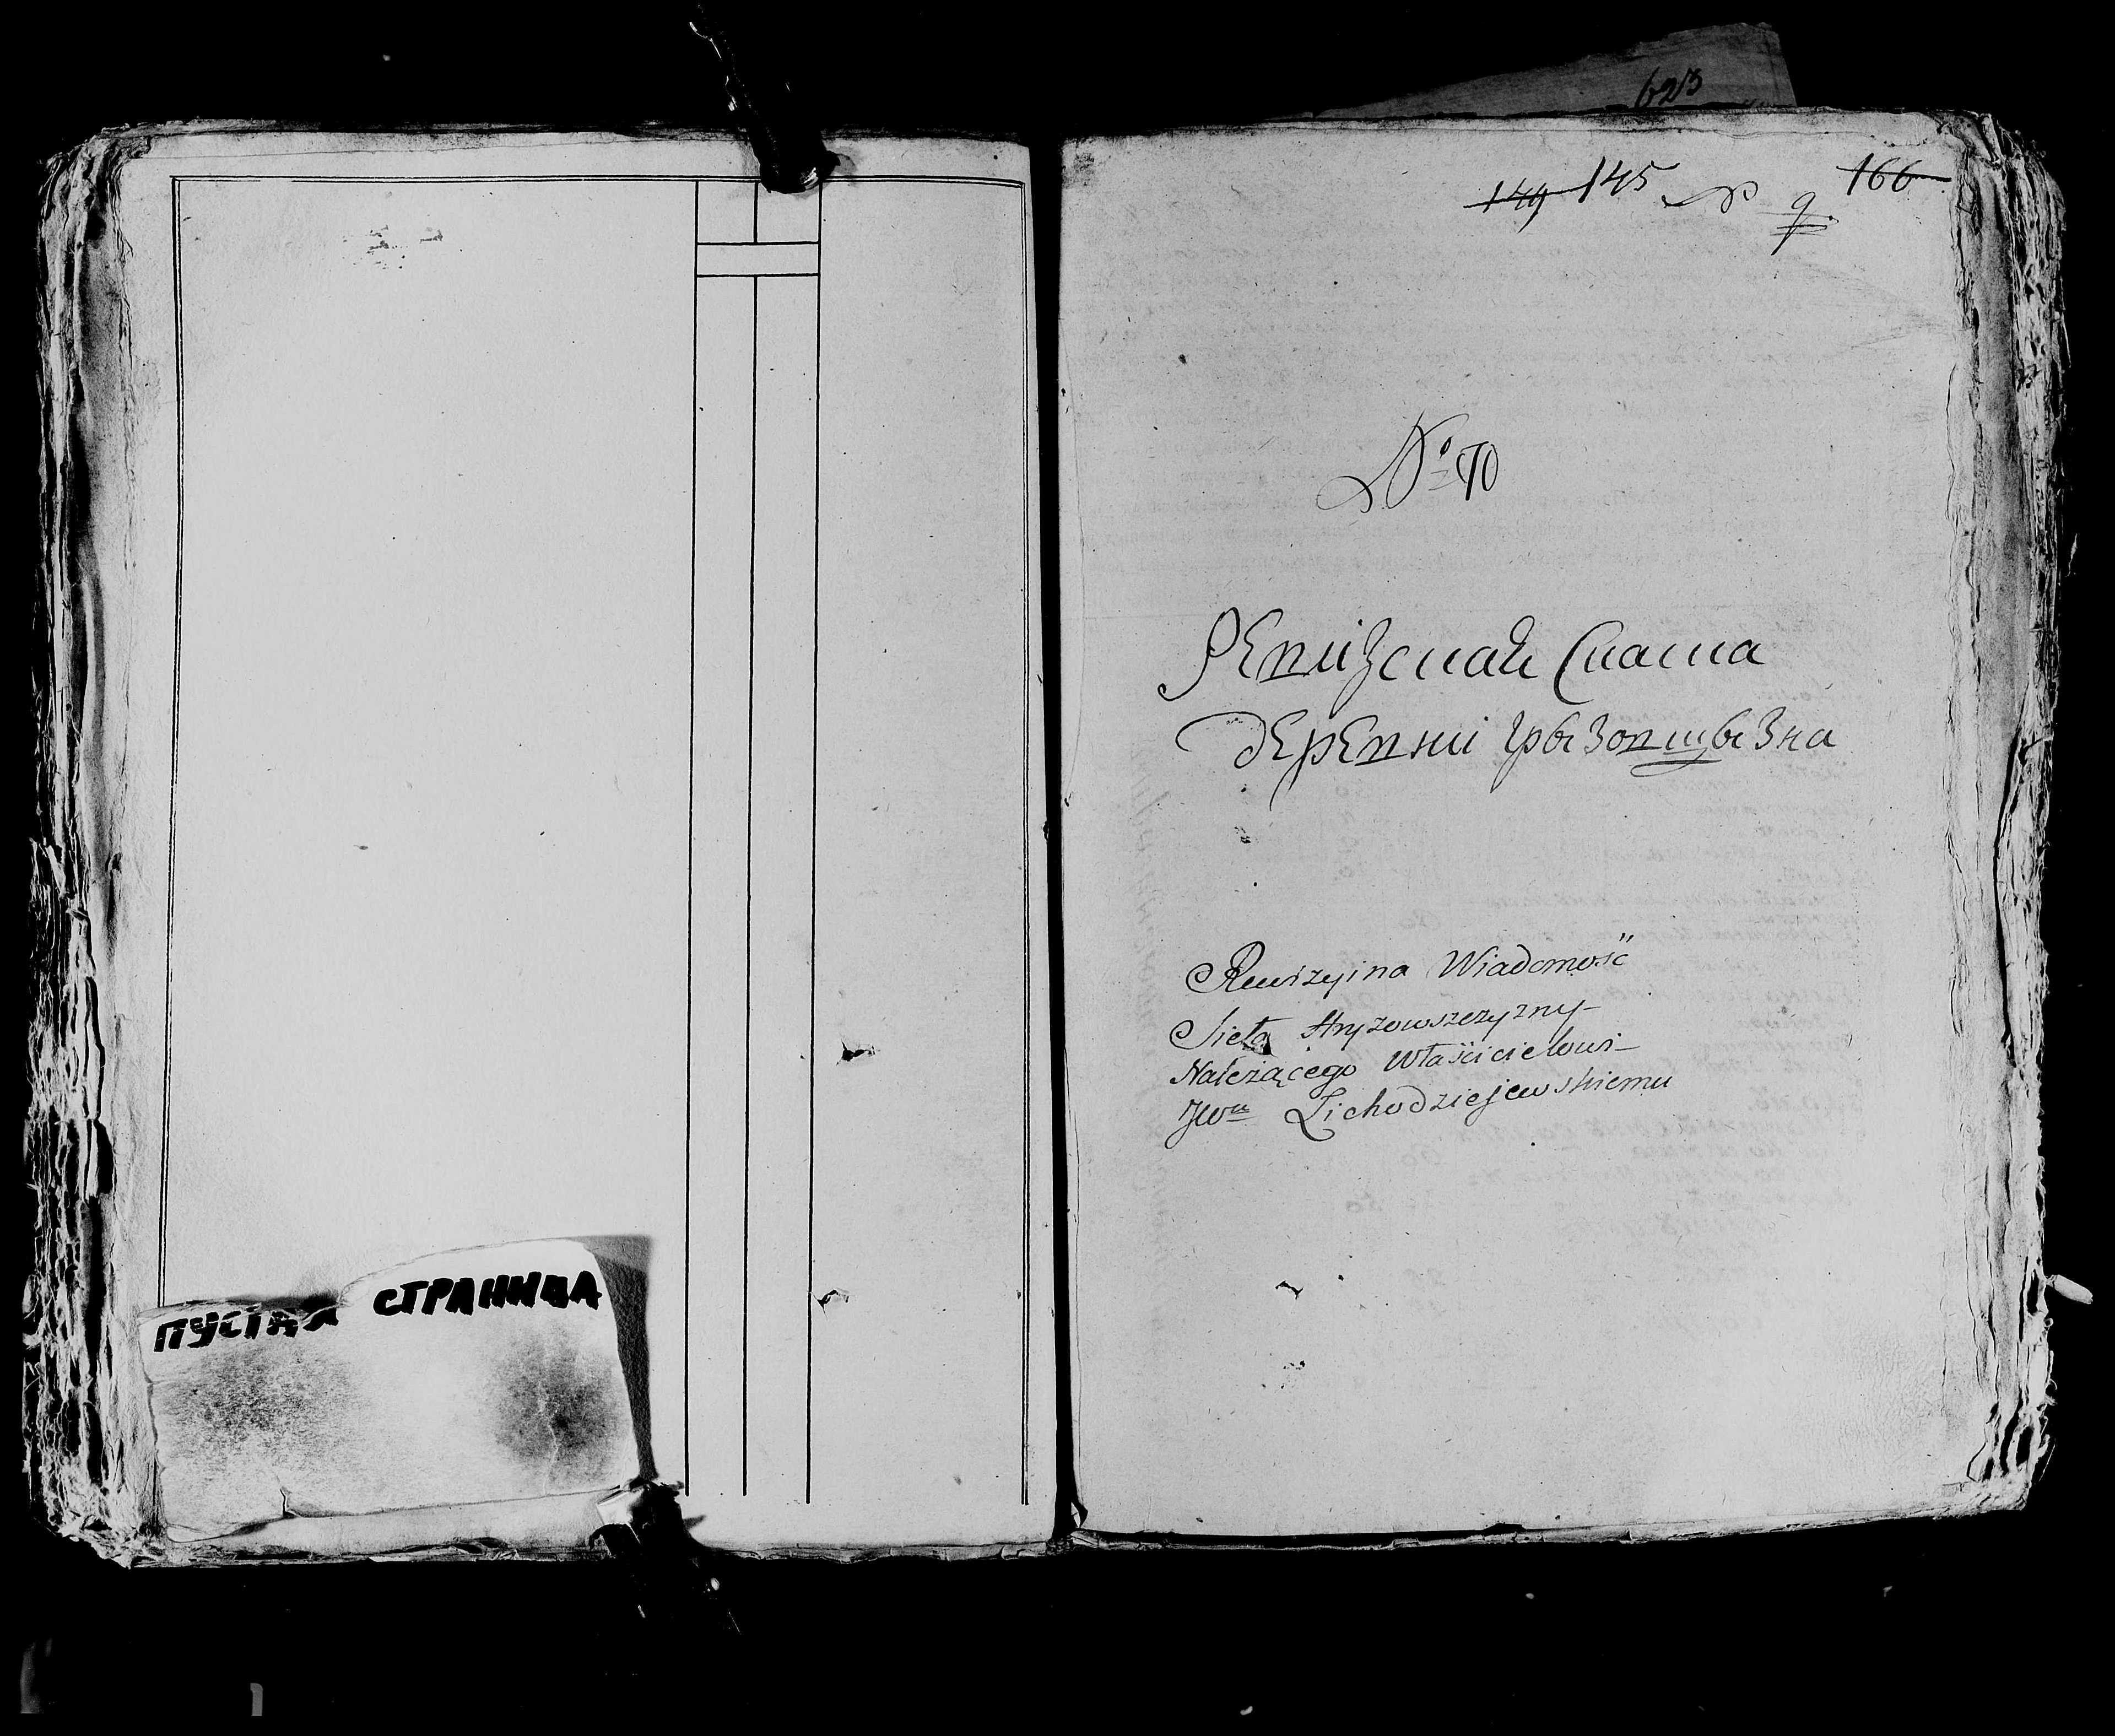 ПУСТАЯ СТРАНИЦА
623
149 145 № 9 166
№ 70
Ревизская Скаска
деревни Грызовщызна
Rewizyina Wiadomość
Sieła Hryzowszczyzny
Należącego Właścicielowi
JWu Lichodziejewskiemu